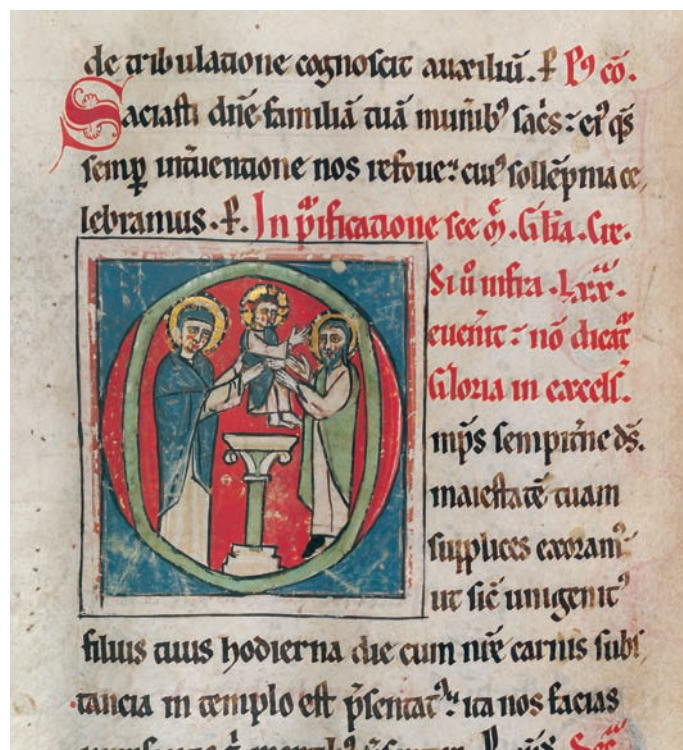 de tribulatione cognoscit auxiliū. ꝑ Pꝯ cō.
Saciasti dn̄e familiā tuā munīb⁹ sac̄s: ei⁹ q̄s
semꝑ int̄uentione nos refoue: cui⁹ sollēpnia ce
lebramus. ꝑ. In p̄ificatione sc̄e m̄. Gl̄ia. Cre.
Si ů infra .Lxx.
euen̄it: nō dicat̄
Gloria in excels̄.
O
mp̄s sempit̄ne ds̄.
maiestatē tuam
supplices exoram⁹
ut sic̄ unigenit⁹
filius tuus hodierna die cum nr̄e carnis subs
tancia in templo est p̄sentat⁹: ita nos facias